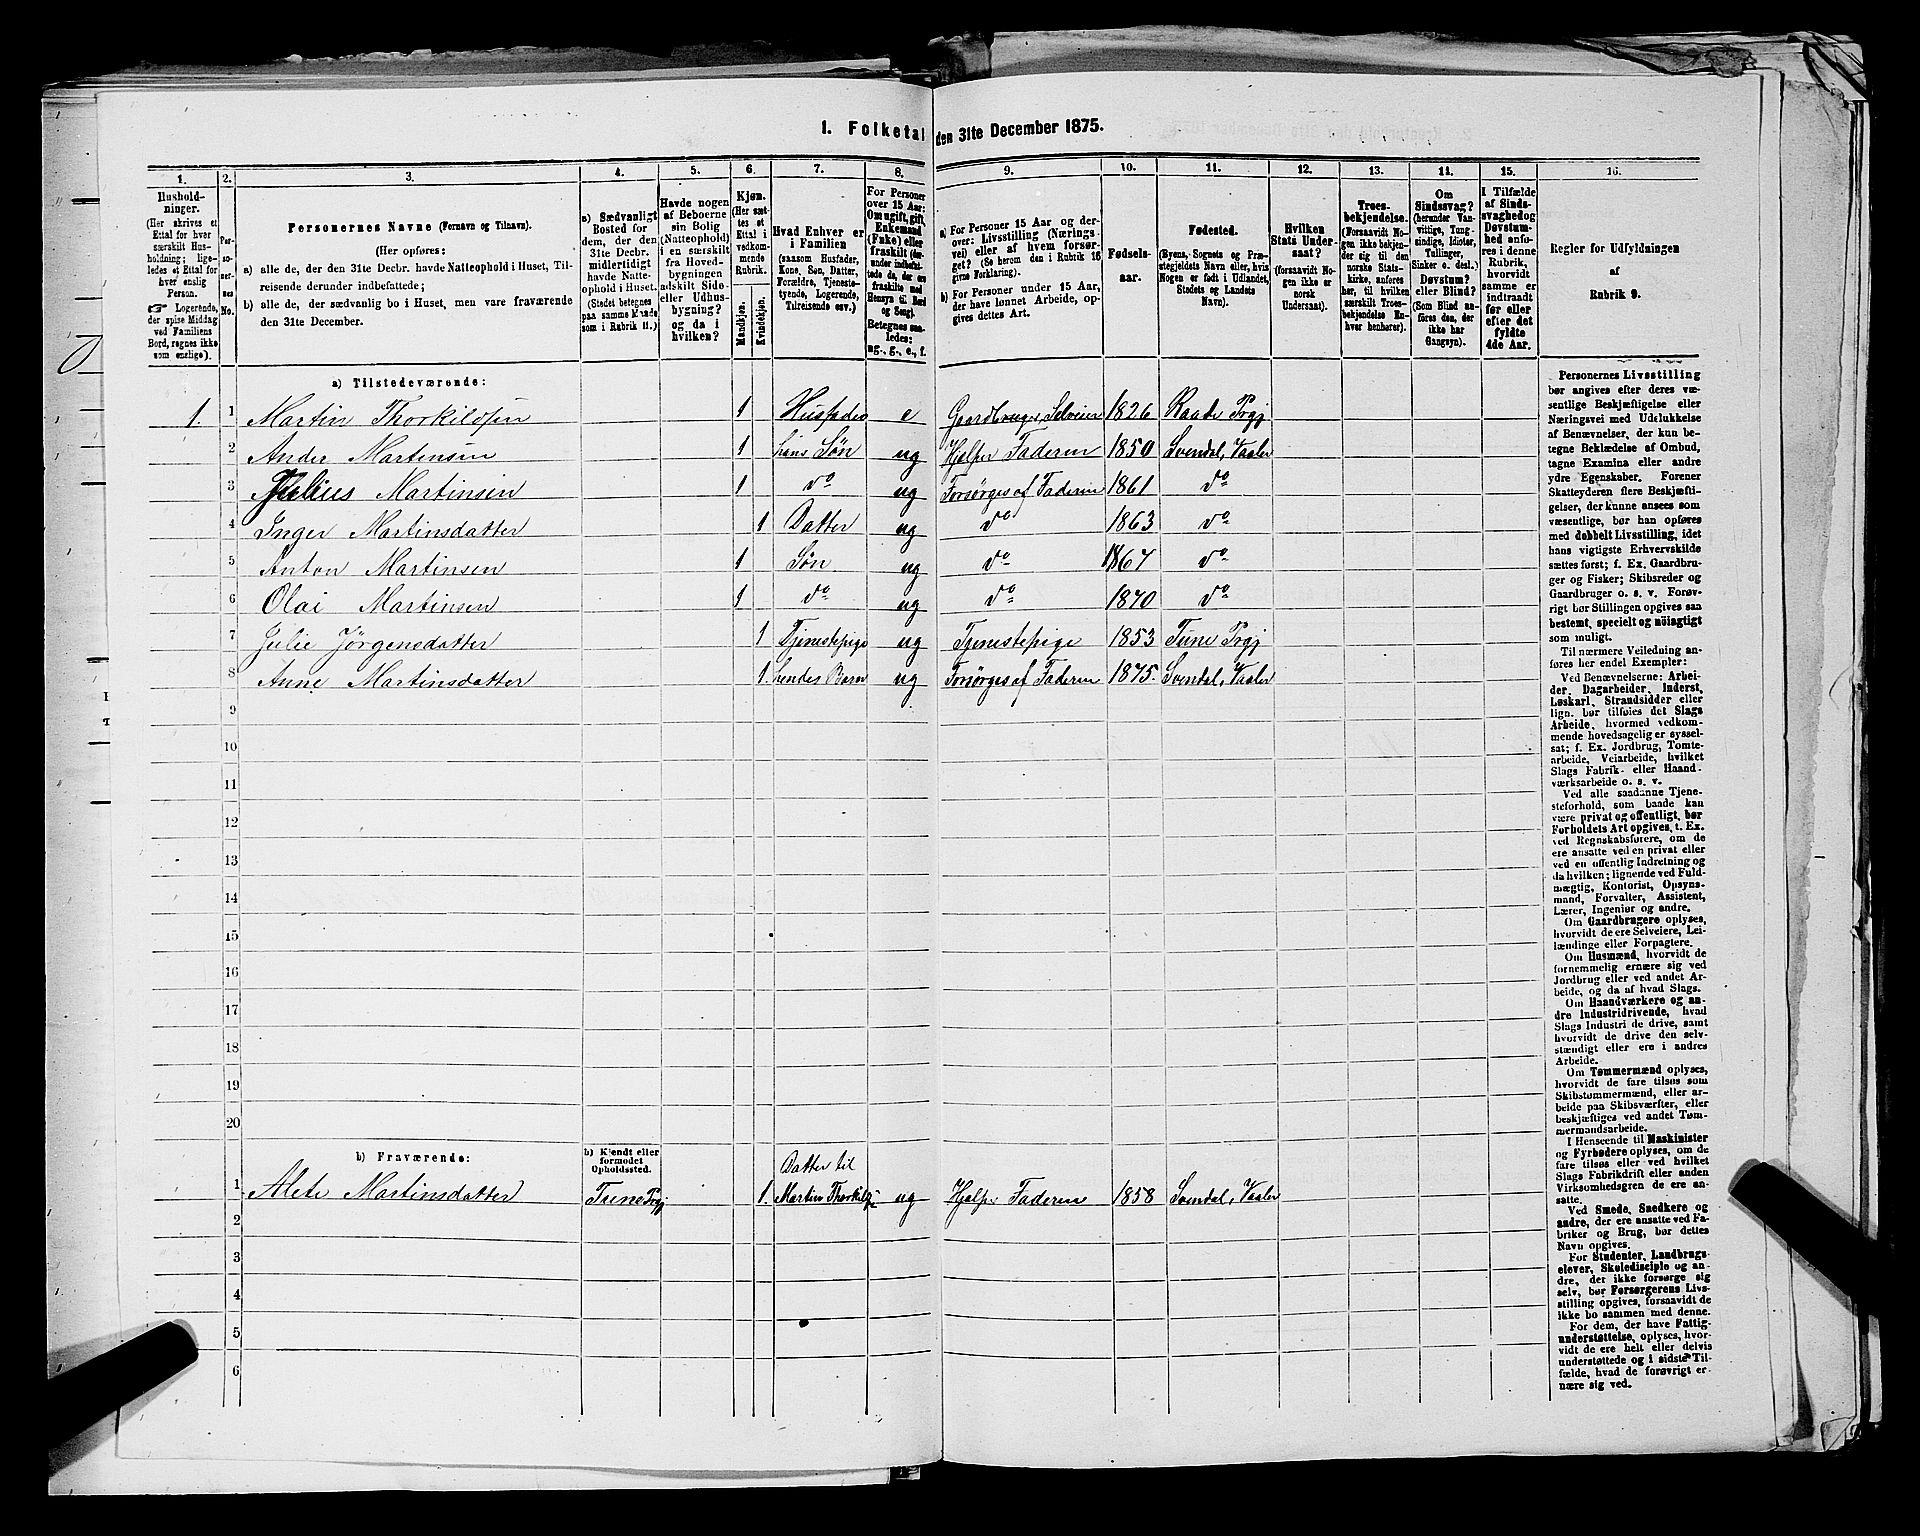 1. Folketal den 31te December 1875.
1. 2. 3. 4. 5. 6. 7. 8. 9. 10. 11. 12. 13. 14. 15. 16.
Hushold-
ninger.
(Her skrives et
Ettal for hver
særskilt Hus-
holdning; lige-
ledes et Ettal for
hver enslig
Person.
☞ Logerende,
der spise Middag
ved Familiens
Bord, regnes ikke
som enslige).
Per-
so-
ner-
nes
No.
Personernes Navne (Fornavn og Tilnavn).
(Her opføres:
a) alle de, der den 31te Decbr. havde Natteophold i Huset, Til-
reisende derunder indbefattede;
b) alle de, der sædvanlig bo i Huset, men vare fraværende
den 31te December.
a) Sædvanligt
Bosted for
dem, der den
31te Decbr.
midlertidigt
havde Natte-
ophold i Huset.
(Stedet betegnes
paa samme Maade
som i Rubrik 11.)
Havde nogen
af Beboerne
sin Bolig
(Natteophold)
i en særskilt
fra Hoved-
bygningen
adskilt Side-
eller Udhus-
bygning?
og da i
hvilken?
Kjøn.
(Her sæt-
tes et
Ettal i
vedkom-
mende
Rubrik.
Mandkjøn.
Kvindekjøn.
Hvad Enhver er
i Familien
(saasom Husfader,
Kone, Søn, Datter,
Forældre, Tjeneste-
tyende, Logerende,
Tilreisende osv.)
For Personer
over 15 Aar:
Om ugift, gift,
Enkemand
(Enke) eller
fraskilt (der-
under indbefat-
tede de, der ere
fraskilte med
Hensyn til Bord
og Seng).
Betegnes saa-
ledes:
ug., g., e., f.
a) For Personer 15 Aar og der-
over: Livsstilling (Nærings-
vei) eller af hvem forsør-
get? (Se herom den i Rubrik 16
givne Forklaring).
b) For Personer under 15 Aar,
der have lønnet Arbeide, op-
gives dettes Art.
Fødsels-
aar.
Fødested.
(Byens, Sognets og Præ-
stegjeldets Navn eller, hvis
Nogen er født i Udlandet,
Stedets og Landets
Navn).
Hvilken
Stats Under-
saat?
(forsaavidt No-
gen ikke er
norsk
Undersaat).
Troes-
bekjendelse.
(Forsaavidt No-
gen ikke bekjen-
der sig til den
norske Stats-
kirke, anføres
her, til hvilken
særskilt Troes-
bekjendelse En-
hver henhører).
Om
Sindssvag?
(herunder Van-
vittige, Tung-
sindige, Idioter,
Tullinger,
Sinker o. desl.)
Døvstum?
eller Blind?
(Som Blind an-
føres den, der
ikke har
Gangsyn).
I Tilfælde
af Sinds-
svaghed og
Døvstum-
hed anfø-
res i denne
Rubrik,
hvorvidt
samme er
indtraadt
før eller
efter det
fyldte
4de Aar.
Regler for Udfyldningen
af
Rubrik 9.
a) Tilstedeværende:
1. 1 Martin Thorkildsen 1 Husfader e Gaardbruger, Selveier 1826 Raade Prgj
2 Ander Martinsen 1 hans Søn ug Hjelper Faderen 1850 Svendal, Vaaler
3 Julius Martinsen 1 do ug Forsørges af Faderen 1861 do
4 Inger Martinsdatter 1 Datter ug do 1863 do
5 Anton Martinsen 1 Søn ug do 1867 do
6 Olai Martinsen 1 do ug do 1870 do
7 Julie Jørgensdatter 1 Tjenestepige ug Tjenestepige 1853 Tune Prgj
8 Anne Martinsdatter 1. hendes Barn ug Forsørges af Faderen 1875. Svendal, Vaaler
9
10
11
12
13
14
15
16
17
18
19
20
b) Fraværende:
b) Kjendt eller
formodet
Opholdssted.
Datter til
1 Alete Martinsdatter Tune Prgj 1. Martin Thorkils ug Hjelper Faderen 1858 Svendal, Vaaler
2
3
4
5
6
Personernes Livsstilling
bør angives efter deres væ-
sentlige Beskjæftigelse eller
Næringsvei med Udelukkelse
af Benævnelser, der kun be-
tegne Beklædelse af Ombud,
tagne Examina eller andre
ydre Egenskaber. Forener
Skatteyderen flere Beskjæfti-
gelser, der kunne ansees som
væsentlige, bør han opføres
med dobbelt Livsstilling, idet
hans vigtigste Erhvervskilde
sættes først; f. Ex. Gaardbru-
ger og Fisker; Skibsreder og
Gaardbruger o. s. v. Forøv-
rigt bør Stillingen opgives saa
bestemt, specielt og nøiagtigt
som muligt.
Til nærmere Veiledning an-
føres her endel Exempler:
Ved Benævnelserne: Arbei-
der, Dagarbeider, Inderst,
Løskarl, Strandsidder eller
lign. bør tilføies det Slags
Arbeide, hvormed vedkom-
mende hovedsagelig er syssel-
sat; f. Ex. Jordbrug, Tomte-
arbeide, Veiarbeide, hvilket
Slags Fabrik- eller Haand-
værksarbeide o. s. v.
Ved alle saadanne Tjene-
steforhold, som baade kan
være privat og offentligt, bør
Forholdets Art opgives, t. Ex.
ved Regnskabsførere, om de
ere ansatte ved en privat eller
ved en offentlig Indretning og
da hvilken; lignende ved Fuld-
mægtig, Kontorist, Opsyns-
mand, Forvalter, Assistent,
Lærer, Ingeniør og andre.
Om Gaardbrugere oplyses,
hvorvidt de ere Selveiere, Lei-
lændinge eller Forpagtere.
Om Husmænd, hvorvidt de
fornemmelig ernære sig ved
Jordbrug eller ved andet Ar-
beide, og da af hvad Slags.
Om Haandværkere og an-
dre Industridrivende, hvad
Slags Industri de drive, samt
hvorvidt de drive den selv-
stændigt eller ere i andres
Arbeide.
Om Tømmermænd oplyses,
hvorvidt de fare tilsøs som
Skibstømmermænd, eller ar-
beide paa Skibsværfter, eller
beskjæftiges ved andet Tøm-
mermandsarbeide.
I Henseende til Maskinister
og Fyrbødere oplyses, om de
fare tilsøs eller ved hvilket
Slags Fabrikdrift eller anden
Virksomhedsgren de ere an-
satte.
Ved Smede, Snedkere og
andre, der ere ansatte ved Fa-
briker og Brug, bør dettes
Navn opgives.
For Studenter, Landbrugs-
elever, Skoledisciple og an-
dre, der ikke forsørge sig
selv, bør Forsørgerens Livs-
stilling opgives, forsaavidt de
ikke bo sammen med denne.
For dem, der have Fattig-
understøttelse, oplyses, hvor-
vidt de ere helt eller delvis
understøttede og i sidste Til-
fælde, hvad de forøvrigt er-
nære sig ved.